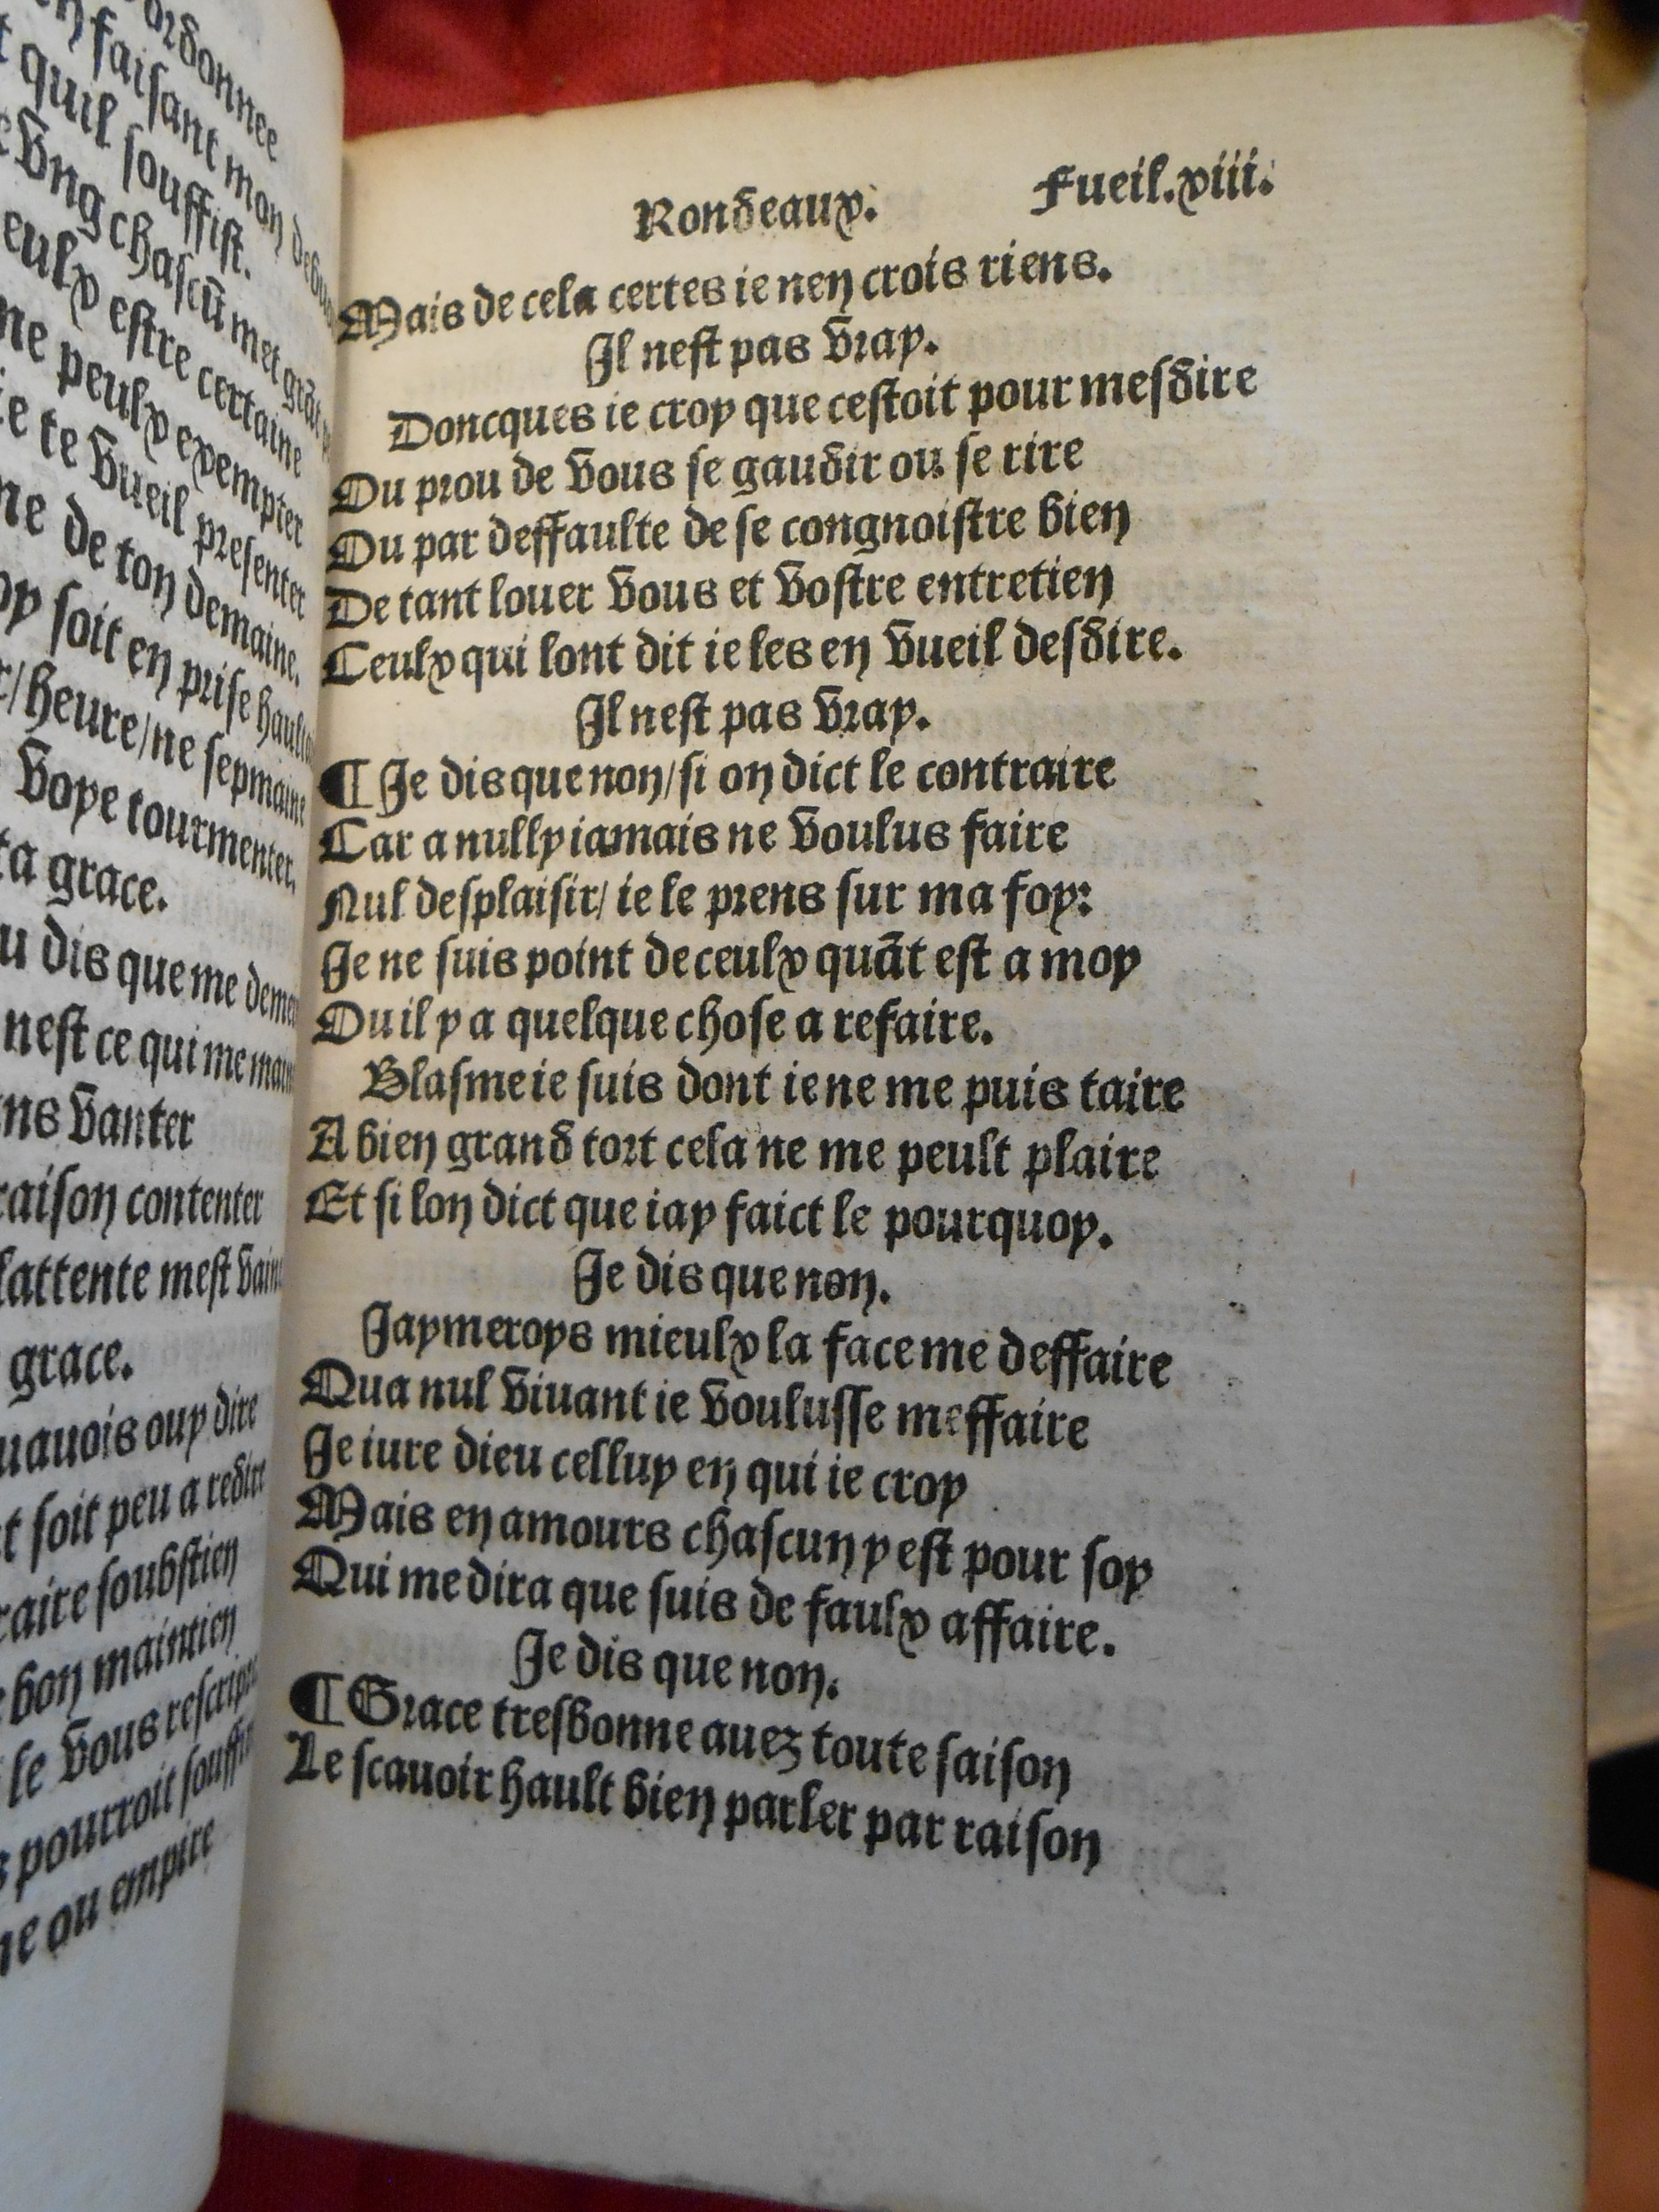 ordonnee
faisant mon
quil souffist.
vng chascū met grāt
estre certaine
ne peulx exempter
te vueil presenter
ne de ton demaine.
soit en prise haul
/heure/ne sepmaine
voye tourmenter.
ta grace.
dis que me
nest ce qui me
vanter
raison contenter
lattente mest vain
grace.
auois ouy dire
soit peu a redire
soubstien
bon maintien
le vous
pourroit
ou empire
Rondeaux. Fueil.xiii.
Mais de cela certes ie nen crois riens.
Il nest pas vray.
Doncques ie croy que cestoit pour mesdire
Ou prou de vous se gaudir ou se rire
Ou par deffaulte de se congnoistre bien
De tant louer vous et vostre entretien
Ceulx qui lont dit ie les en vueil desdire.
Il nest pas vray.
¶ Je dis que non/si on dict le contraire
Car a nully iamais ne voulus faire
Nul desplaisir/ ie le prens sur ma foy:
Je ne suis point de ceulx quāt est a moy
Ou il y a quelque chose a refaire.
Blasme ie suis dont ie ne me puis taire
A bien grand tort cela ne me peult plaire
Et si lon dict que iay faict le pourquoy.
Je dis que non.
Jaymeroys mieulx la face me deffaire
Qua nul viuant ie voulusse meffaire
Je iure dieu celluy en qui ie croy
Mais en amours chascun y est pour soy
Qui me dira que suis de faulx affaire.
Je dis que non.
¶ Grace tresbonne auez toute saison
Le scauoir hault bien parler par raison